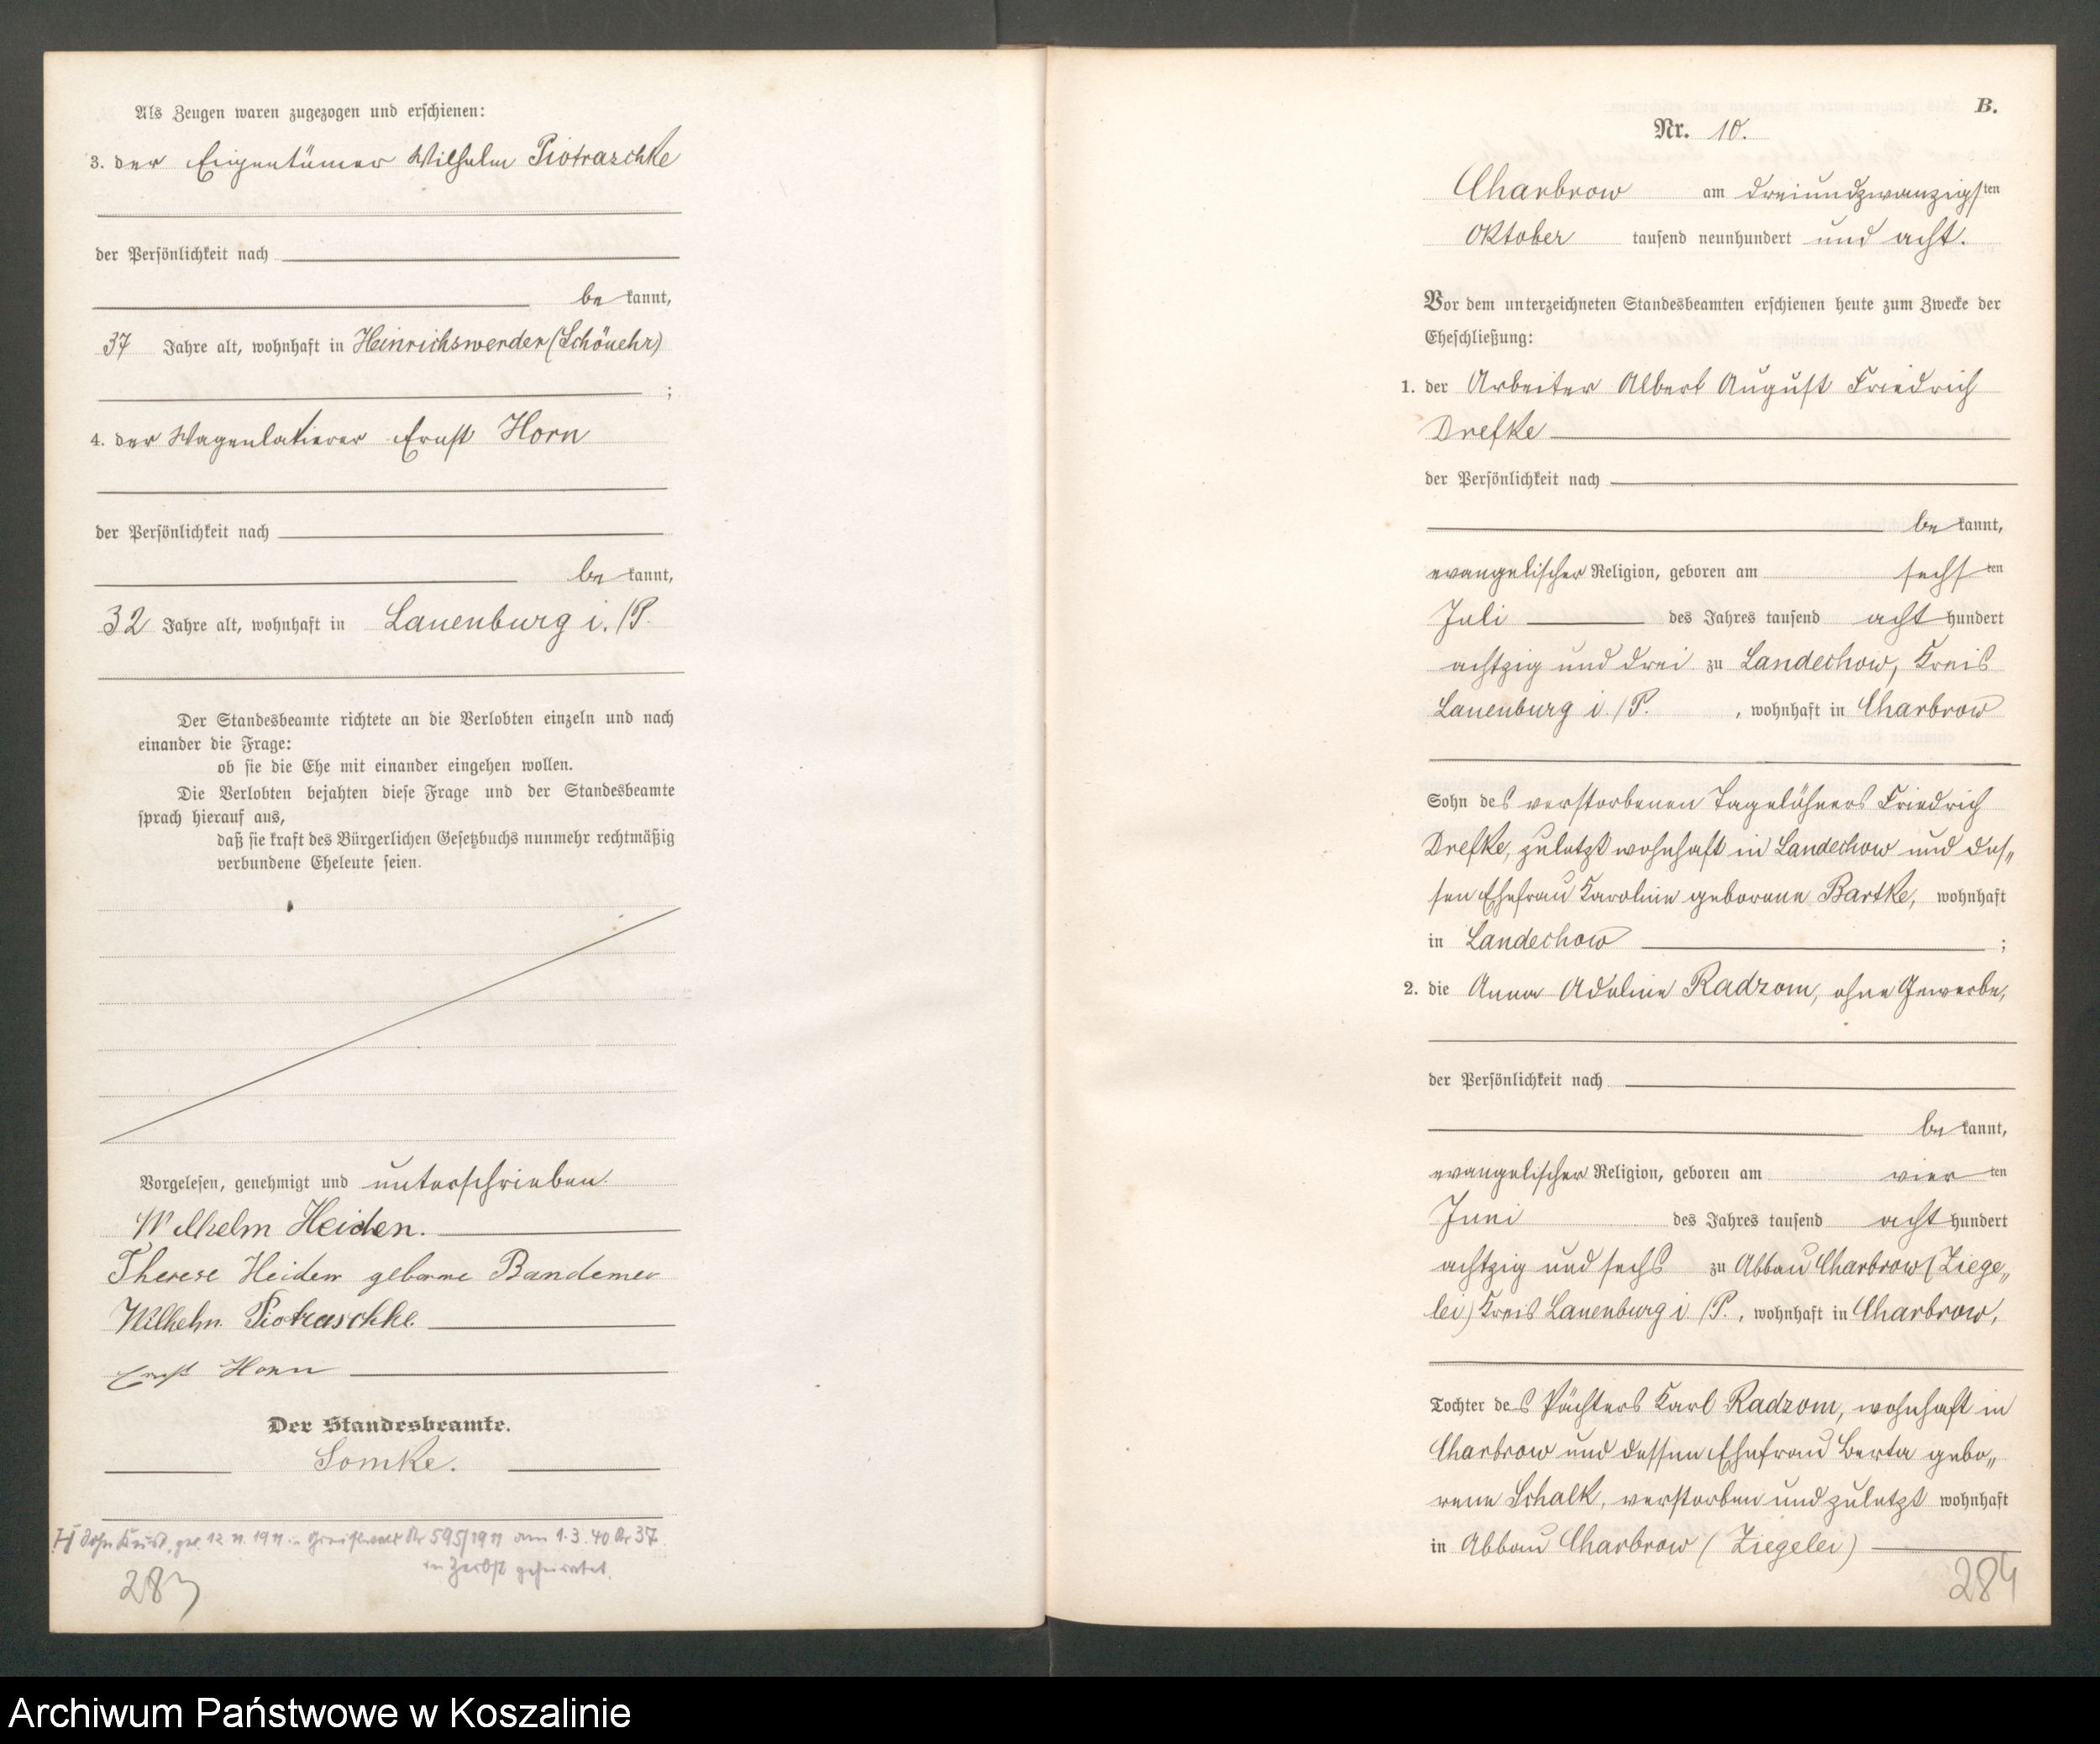 Als Zeugen waren zugezogen und erschienen:
3. der Eigentümer Wilhelm Piotraschke
der Persönlichkeit nach
be kannt,
37 Jahre alt, wohnhaft in Heinrichswerder (Schönehr)
;
4. der Wagenlakierer Ernst Horn
der Persönlichkeit nach
be kannt,
32 Jahre alt, wohnhaft in Lauenburg i./P.
Der Standesbeamte richtete an die Verlobten einzeln und nach
einander die Frage:
ob sie die Ehe mit einander eingehen wollen.
Die Verlobten bejahten diese Frage und der Standesbeamte
sprach hierauf aus,
daß sie kraft des Bürgerlichen Gesetzbuchs nunmehr rechtmäßig
verbundene Eheleute seien.
Vorgelesen, genehmigt und unterschrieben.
Wilhelm Heiden.
Therese Heiden geborne Bandemer
Wilhelm Piotraschke
Ernst Horn
Der Standesbeamte.
Somke.
Sohn geb. 12. 11. 1911 in Greifswald Nr 595/1911 am 1.3.40 Nr 37
in Zerbst geheiratet.
283
B.
Nr. 10.
Charbrow am dreiundzwanzigsten
Oktober tausend neunhundert und acht.
Vor dem unterzeichneten Standesbeamten erschienen heute zum Zwecke der
Eheschließung:
1. der Arbeiter Albert August Friedrich
Drefke
der Persönlichkeit nach
be kannt,
evangelischer Religion, geboren am sechsten
Juli des Jahres tausend acht hundert
achtzig und drei zu Landechow, Kreis
Lauenburg i./P. , wohnhaft in Charbrow
Sohn des verstorbenen Tagelöhners Friedrich
Drefke, zuletzt wohnhaft in Landechow und des„
sen Ehefrau Karoline geborene Bartke, wohnhaft
in Landechow ;
2. die Anna Adeline Radzom, ohne Gewerbe,
der Persönlichkeit nach
be kannt,
evangelischer Religion, geboren am vier ten
Juni des Jahres tausend acht hundert
achtzig und sechs zu Abbau Charbrow (Ziege„
lei) Kreis Lauenburg i /P. , wohnhaft in Charbrow,
Tochter des Pächters Karl Radzom, wohnhaft in
Charbrow und dessen Ehefrau Berta gebo„
rene Schalk, verstorben und zuletzt wohnhaft
in Abbau Charbrow (Ziegelei)
284
Archiwum Państwowe w Koszalinie